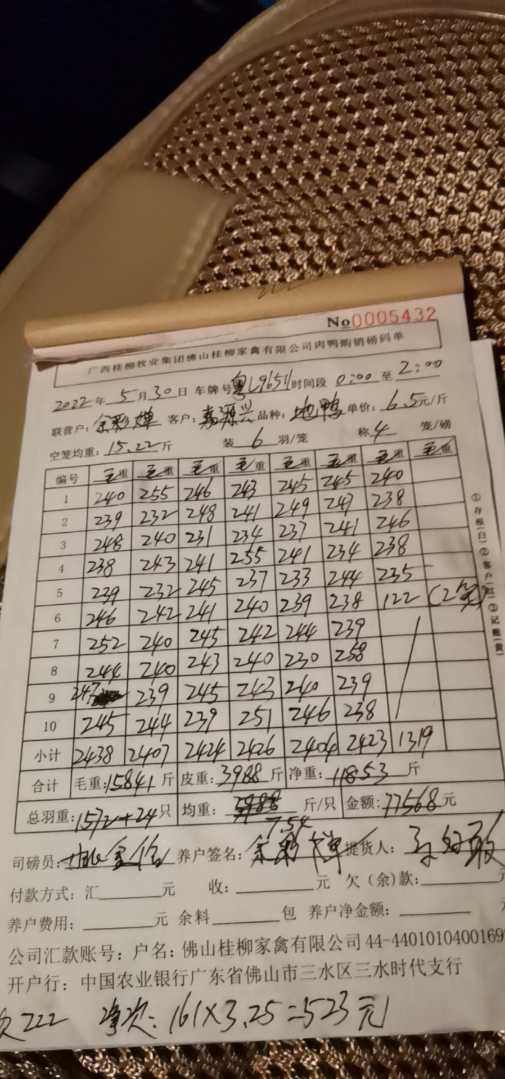 No0005432
广西桂柳牧业集团佛山桂柳家禽有限公司肉鸭购销磅码单
2022年 5月30日 车牌号粤L9651时间段 0:00 至 2:00
联营户: 余彩婵 客户: 源兴 品种: 地鸭 单价: 6.5元/斤
空笼均重: 15.22斤 装 6 羽/笼 称 4 笼/磅
编号 毛重 毛重 毛重 毛重 毛重 毛重 毛重 毛重
1 240 255 246 243 245 245 240
2 239 232 248 241 249 247 238
3 248 240 231 234 237 241 246
4 238 243 241 255 241 234 238
5 239 232 245 237 233 244 235
6 246 242 241 240 239 238 122 (2笼)
7 252 240 245 242 244 239
8 244 240 243 240 230 258
9 247 239 245 243 240 239
10 245 244 239 251 246 238
小计 2438 2407 2424 2426 2404 2423 1319
合计 毛重: 15841 斤 皮重: 3988 斤 净重: 11853 斤
总羽重: 1572+24只 均重: 7.54 斤/只 金额: 77568元
司磅员: 养户签名: 余彩婵 提货人:
付款方式: 汇 元 收: 元 欠(余)款:
养户费用: 元 余料 包 养户净金额: 元
公司汇款账号: 户名: 佛山桂柳家禽有限公司 44-4401010400169
开户行: 中国农业银行广东省佛山市三水区三水时代支行
222 净次: 161×3.25=523元
①存根(白)②客户(红)③记账(黄)